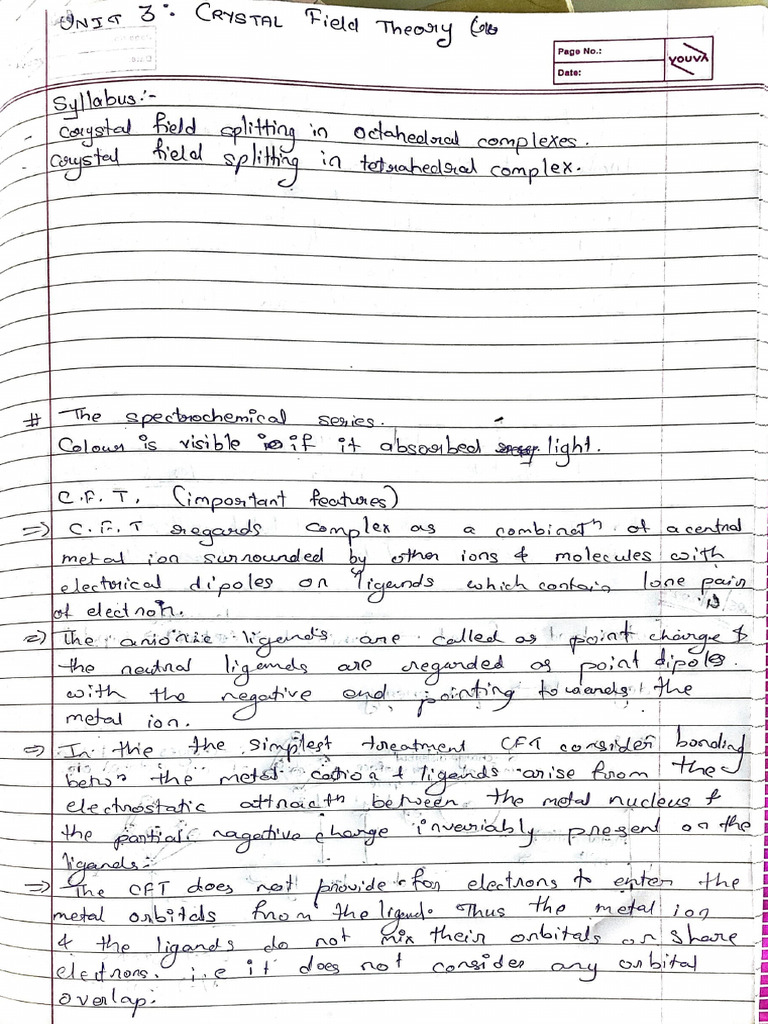 UNIT 3: CRYSTAL Field Theory
Page No.:
Date:
YOUVA
Syllabus:-
- Crystal field splitting in octahedral complexes.
- Crystal field splitting in tetrahedral complex.
# The spectrochemical series.
Colour is visible if it absorbed light.
C.F.T. (important features)
⇒ C.F.T regards complex as a combinatⁿ of a central
metal ion surrounded by other ions & molecules with
electrical dipoles on ligands which contain lone pair
of electron.
⇒ The anionic ligends are called as point charge &
the neutral ligands are regarded as point dipoles.
with the negative end pointing towards the
metal ion.
⇒ In the the simplest treatment CFT consider bonding
betwⁿ the metal cation & ligends arise from the
electrostatic attractⁿ between the metal nucleus &
the partial nagative charge invariably present on the
ligands.
⇒ The CFT does not provide for electrons to enter the
metal orbitals from the ligend. Thus the metal ion
& the ligands do not mix their orbitals or share
electrons. i.e it does not consider any orbital
overlap.